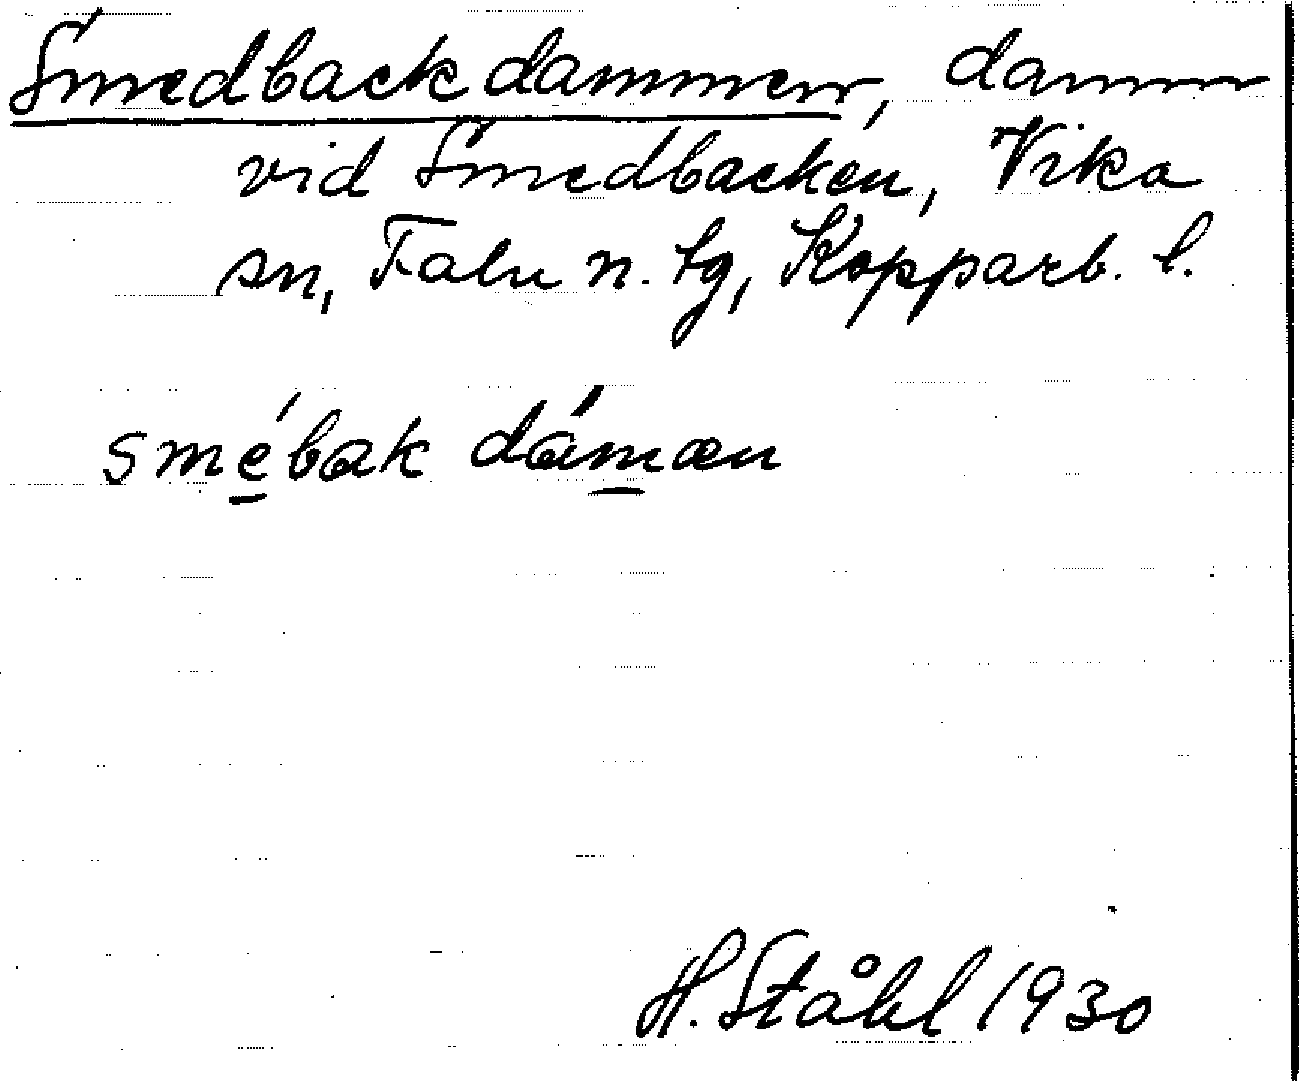 Smedbackdammen, damm
vid Smedbacken, Vika
sn, Falu n. tg, Kopparb. l.
smébak dámæn
H. Ståhl 1930